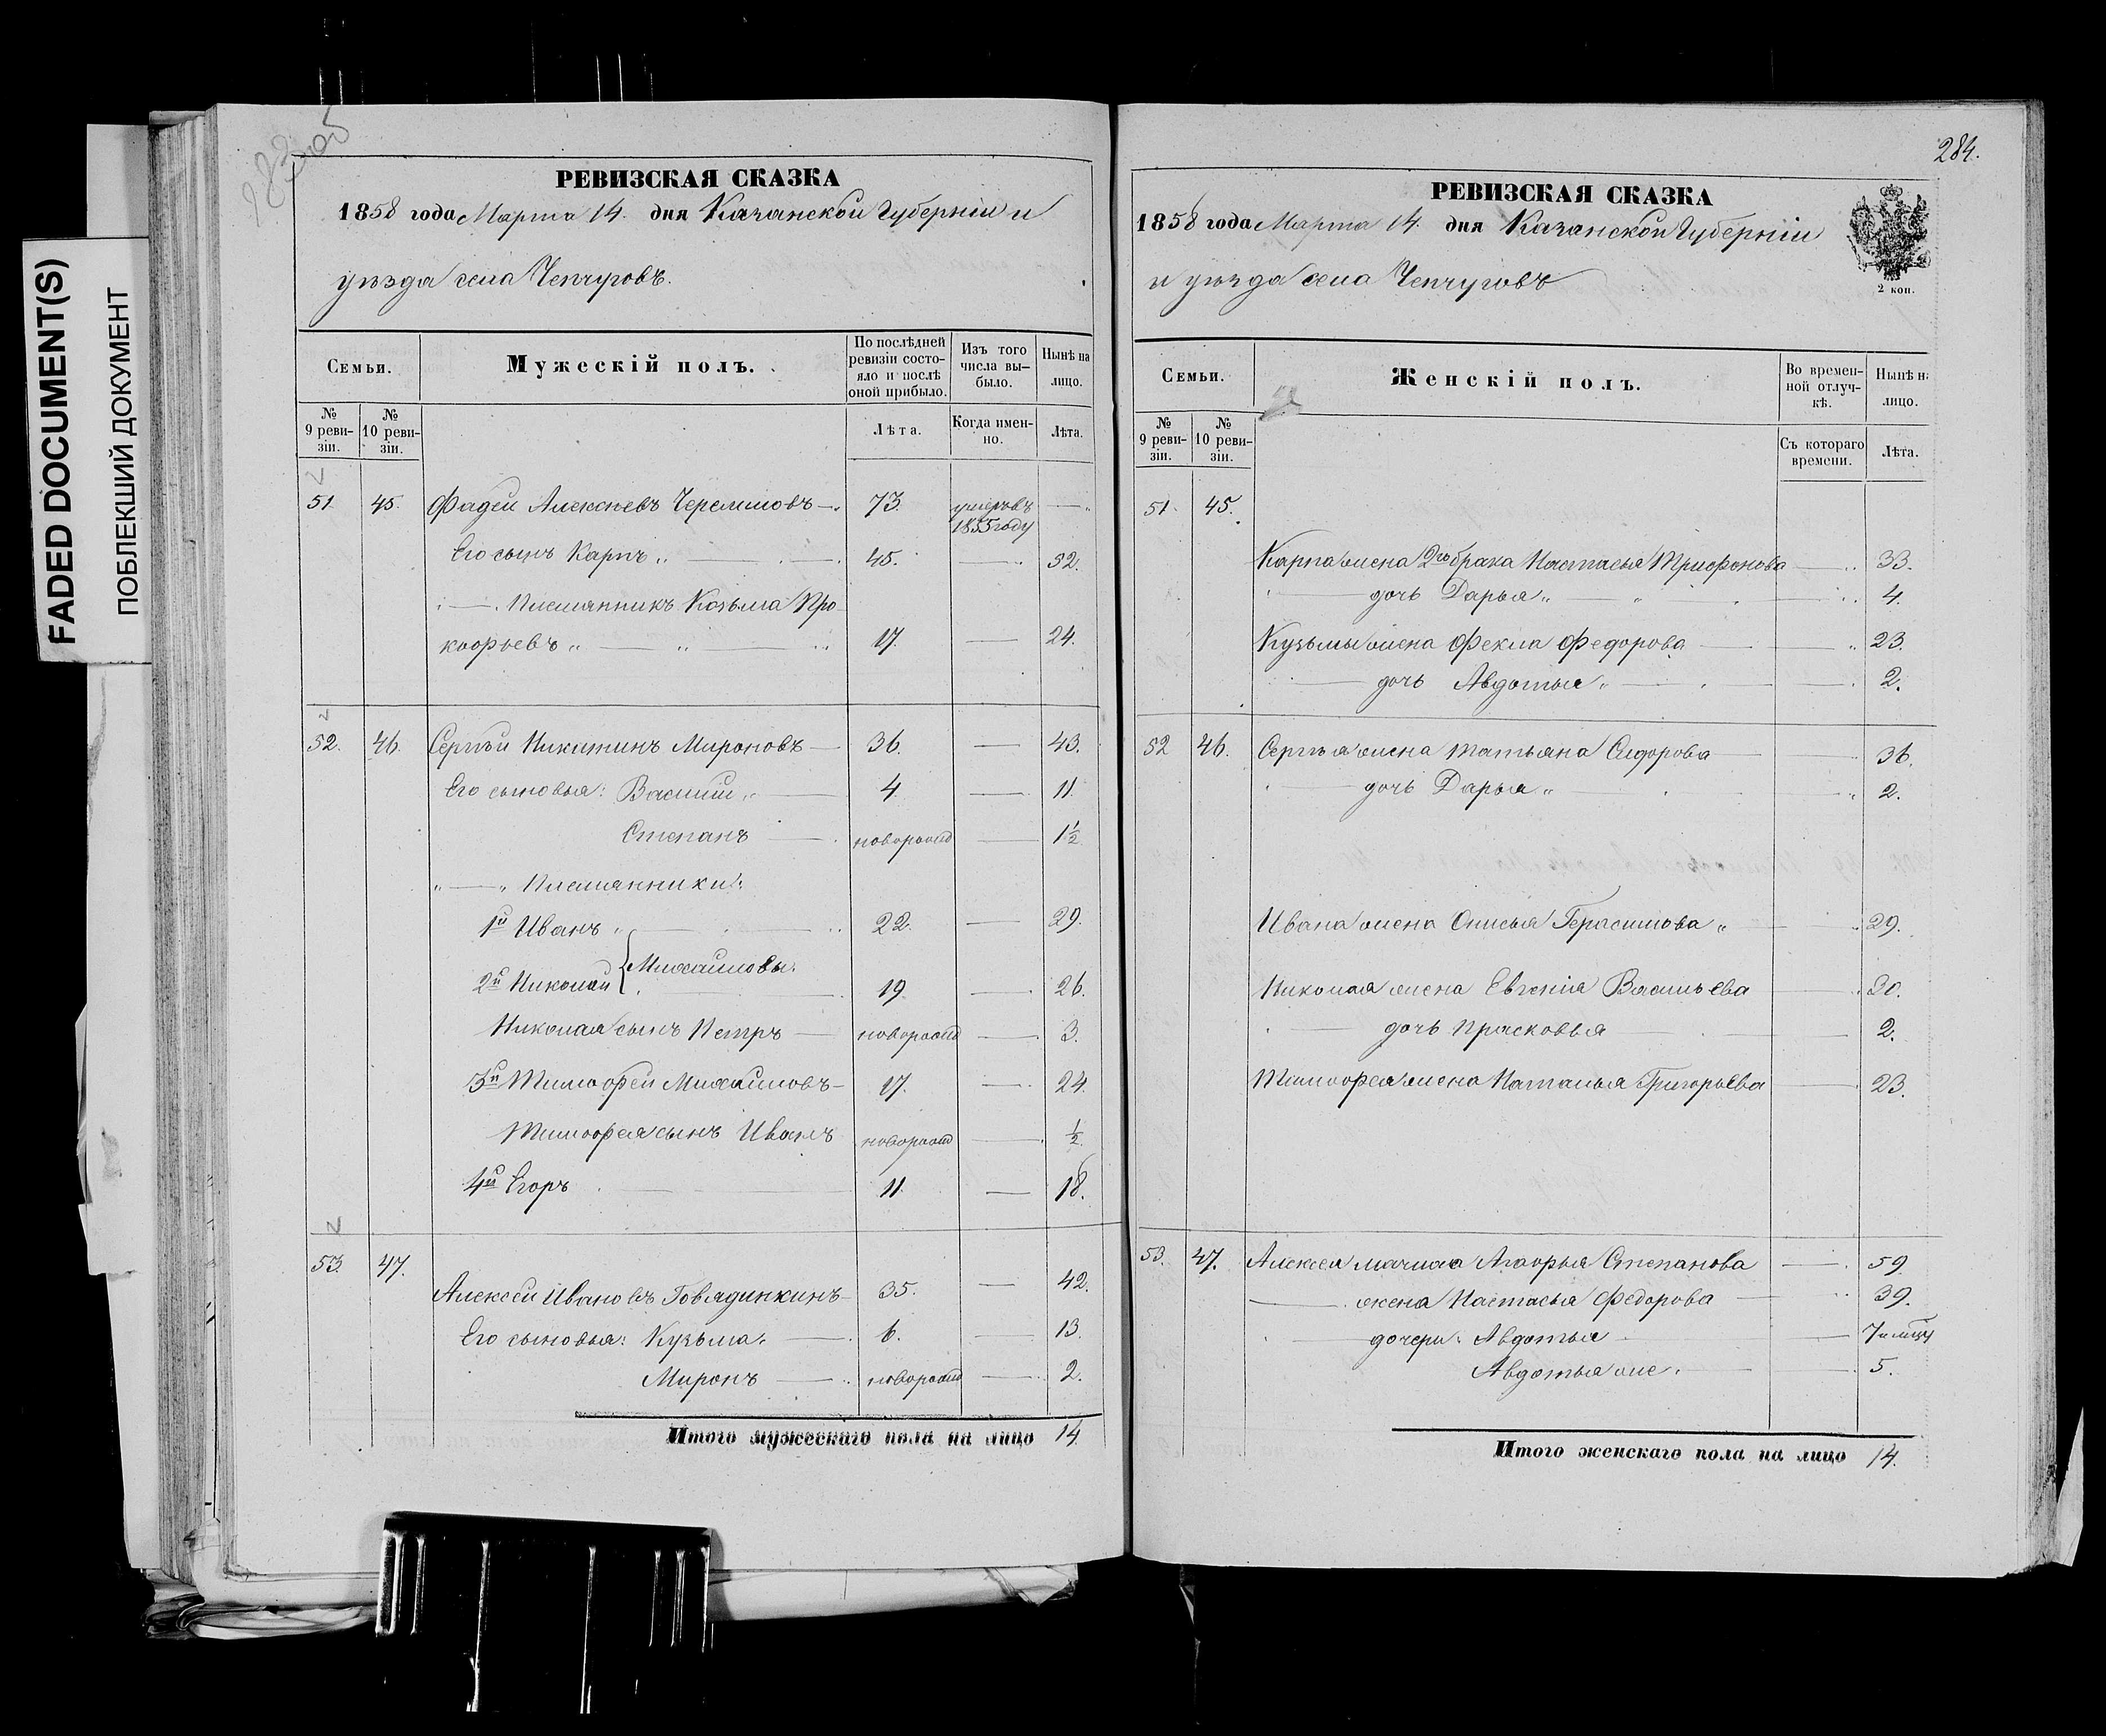 FADED DOCUMENT(S)
ПОБЛЕКШИЙ ДОКУМЕНТ
РЕВИЗСКАЯ СКАЗКА
1858 года Марта 14. дня Казанской Губерніи и
уѣзда села Чепчуговъ.
Семьи.
Мужескій полъ.
По послѣдней ревизіи состояло и послѣ оной прибыло.
Изъ того числа выбыло.
Нынѣ на лицо.
№ 9 ревизіи.
№ 10 ревизіи.
Лѣта.
Когда именно.
Лѣта.
51 45. Фадей Алексѣевъ Черемшовъ 73. умеръ въ 1855 году
Его сынъ Карпъ 45. 52.
Племянникъ Козьма Про-
кофьевъ 17. 24.
52. 46. Сергѣй Никитинъ Мироновъ 36. 43.
Его сыновья: Василій 4 11
Степанъ новорожд 1½
Племянники:
1й Иванъ 22. 29.
Михайловы.
2й Николай 19 26.
Николая сынъ Петръ новорожд 3.
3й Тимофей Михайловъ 17. 24.
Тимофея сынъ Иванъ новорожд ½
4й Егоръ 11. 18.
53. 47. Алексѣй Ивановъ Говядинкинъ 35. 42.
Его сыновья: Кузьма 6. 13.
Миронъ новорожд 2.
Итого мужескаго пола на лицо 14.
284.
РЕВИЗСКАЯ СКАЗКА
1858 года Марта 14. дня Казанской Губерніи
и уѣзда села Чепчуговъ
2 коп.
Семьи.
Женскій полъ.
Во временной отлучкѣ.
Нынѣ на лицо.
№ 9 ревизіи.
№ 10 ревизіи.
Съ котораго времени.
Лѣта.
51. 45.
Карпа жена 2го брака Настасья Трифонова 33.
дочь Дарья 4.
Кузьмы жена Фекла Федорова 23.
дочь Авдотья 2.
52 46. Сергѣя жена Татьяна Сидорова 36.
дочь Дарья 2.
Ивана жена Анисья Герасимова 29.
Николая жена Евгенія Васильева 30.
дочь Прасковья 2.
Тимофея жена Наталья Григорьева 23.
53. 47. Алексѣя мачиха Агафья Степанова 59.
жена Настасья Федорова 39.
дочери: Авдотья 7
Авдотья же 5.
Итого женскаго пола на лицо 14.